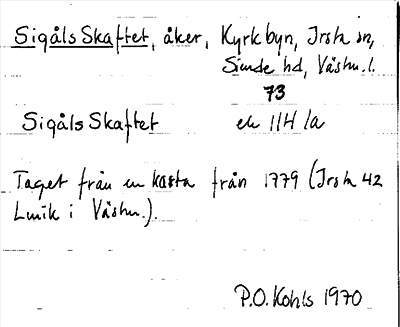 Sigåls Skaftet, åker, Kyrkbyn, Irsta sn,
Siende hd, Västm. l.
73
Sigåls Skaftet ek 11H 1a
Taget från en karta från 1779 (Irsta 42
Lmik i Västm.).
P.O. Kohls 1970